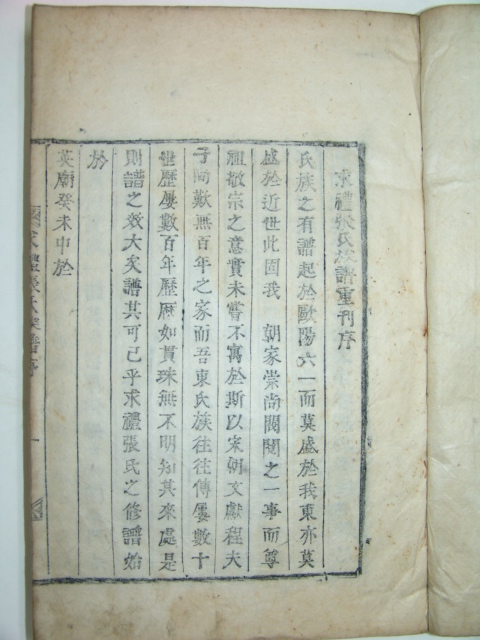 求禮張氏族譜重刊序
氏族之有譜起於歐陽六一而莫盛於我東亦莫
盛於近世此固我　朝家崇尚閥閱之一事而尊
祖敬宗之意實未嘗不寓於斯以宋朝文獻程夫
子尚歎無百年之家而吾東氏族往往傳屢數十
世歷屢數百年歷歷如貫珠無不明知其來處是
則譜之效大矣譜其可已乎求禮張氏之修譜始
於
英廟癸未中於
求禮張氏族譜序 一